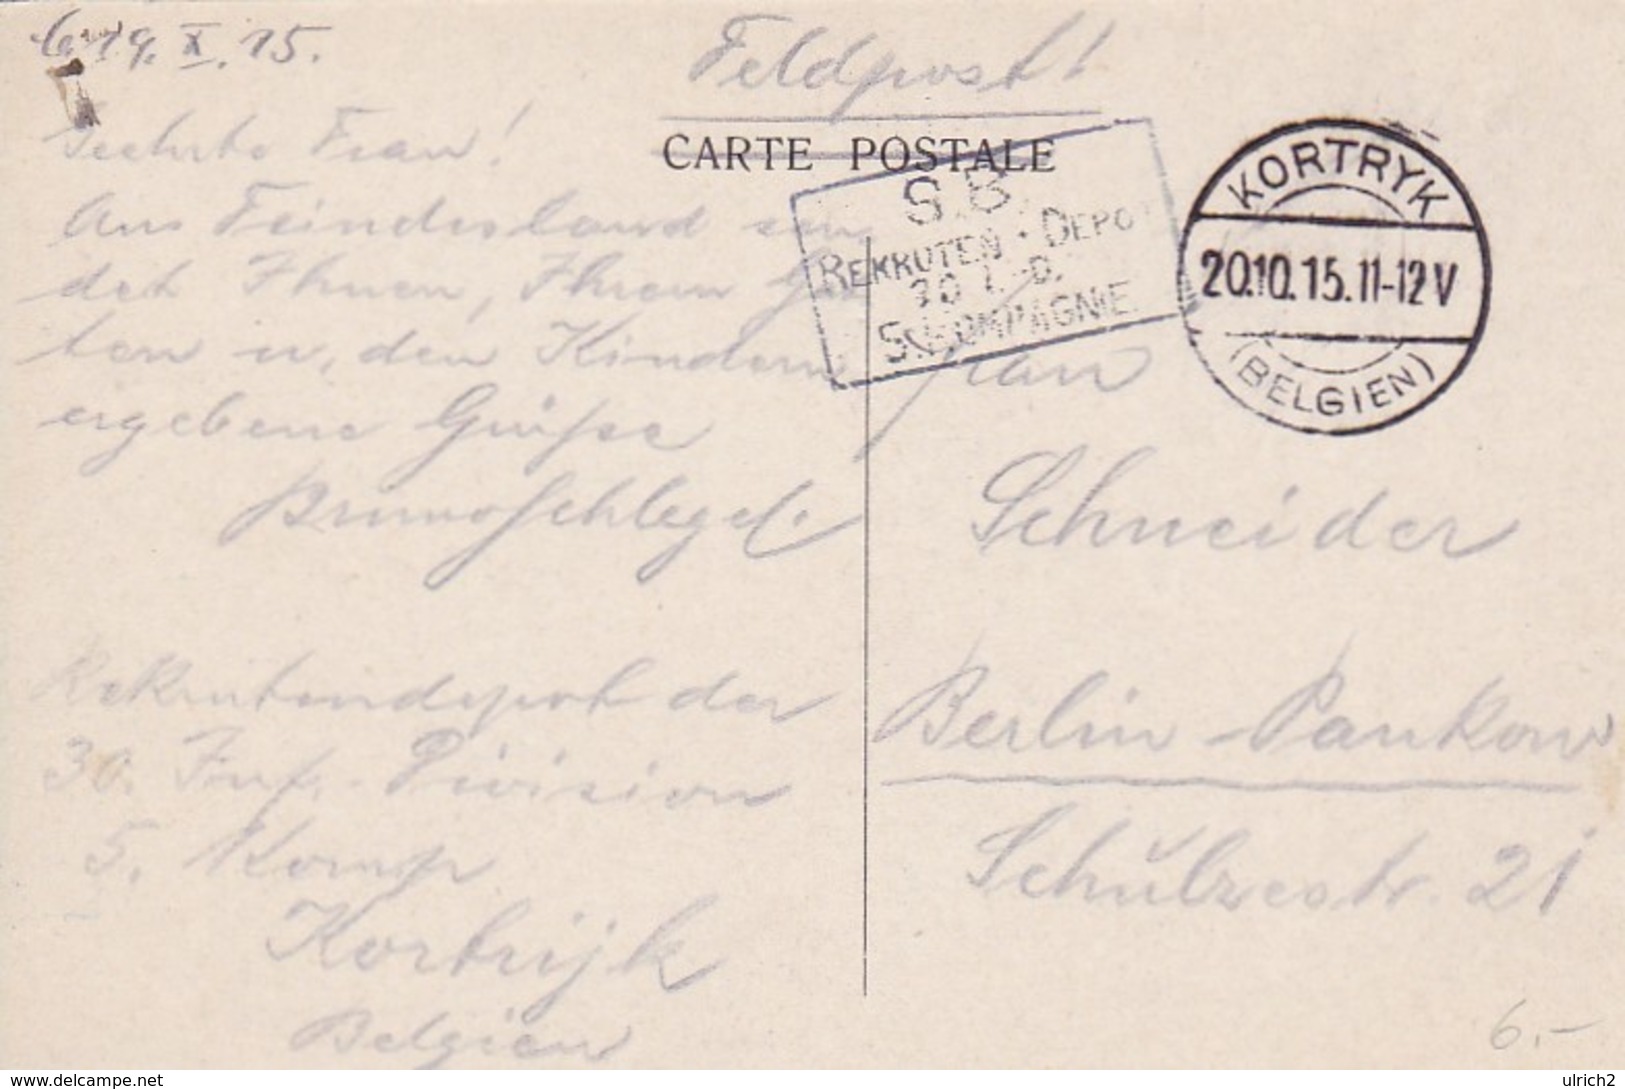 19. X. 15.
Feldpost!
CARTE POSTALE
Geehrte Frau!
Aus Feindesland sen
det Ihnen, Ihrem Gat
ten u. den Kindern
ergebene Grüße
Bruno Schlegel.
Rekrutendepot der
30. Inf.-Division
5. Komp
Kortrijk
Belgien
S.B.
REKRUTEN-DEPOT
30 I.-D.
5. COMPAGNIE
KORTRYK
20.10.15.11-12V
(BELGIEN)
Frau
Schneider
Berlin-Pankow
Schulzestr. 21
6.-
delcampe.net
ulrich2